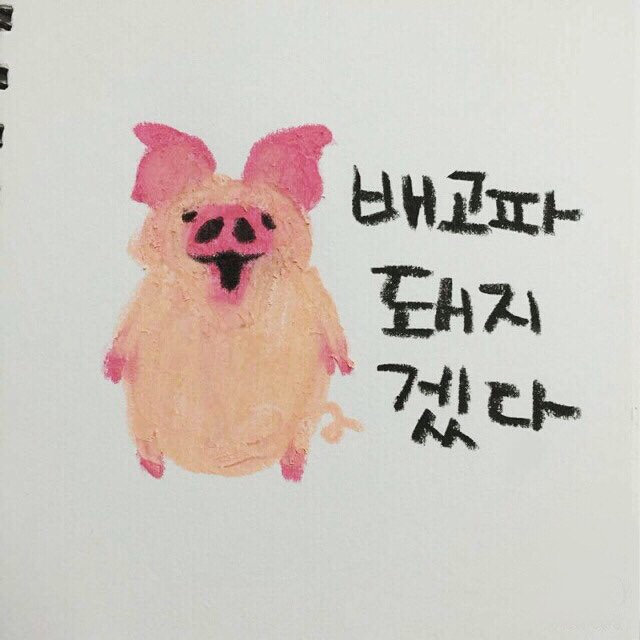 배고파
돼지
겠다